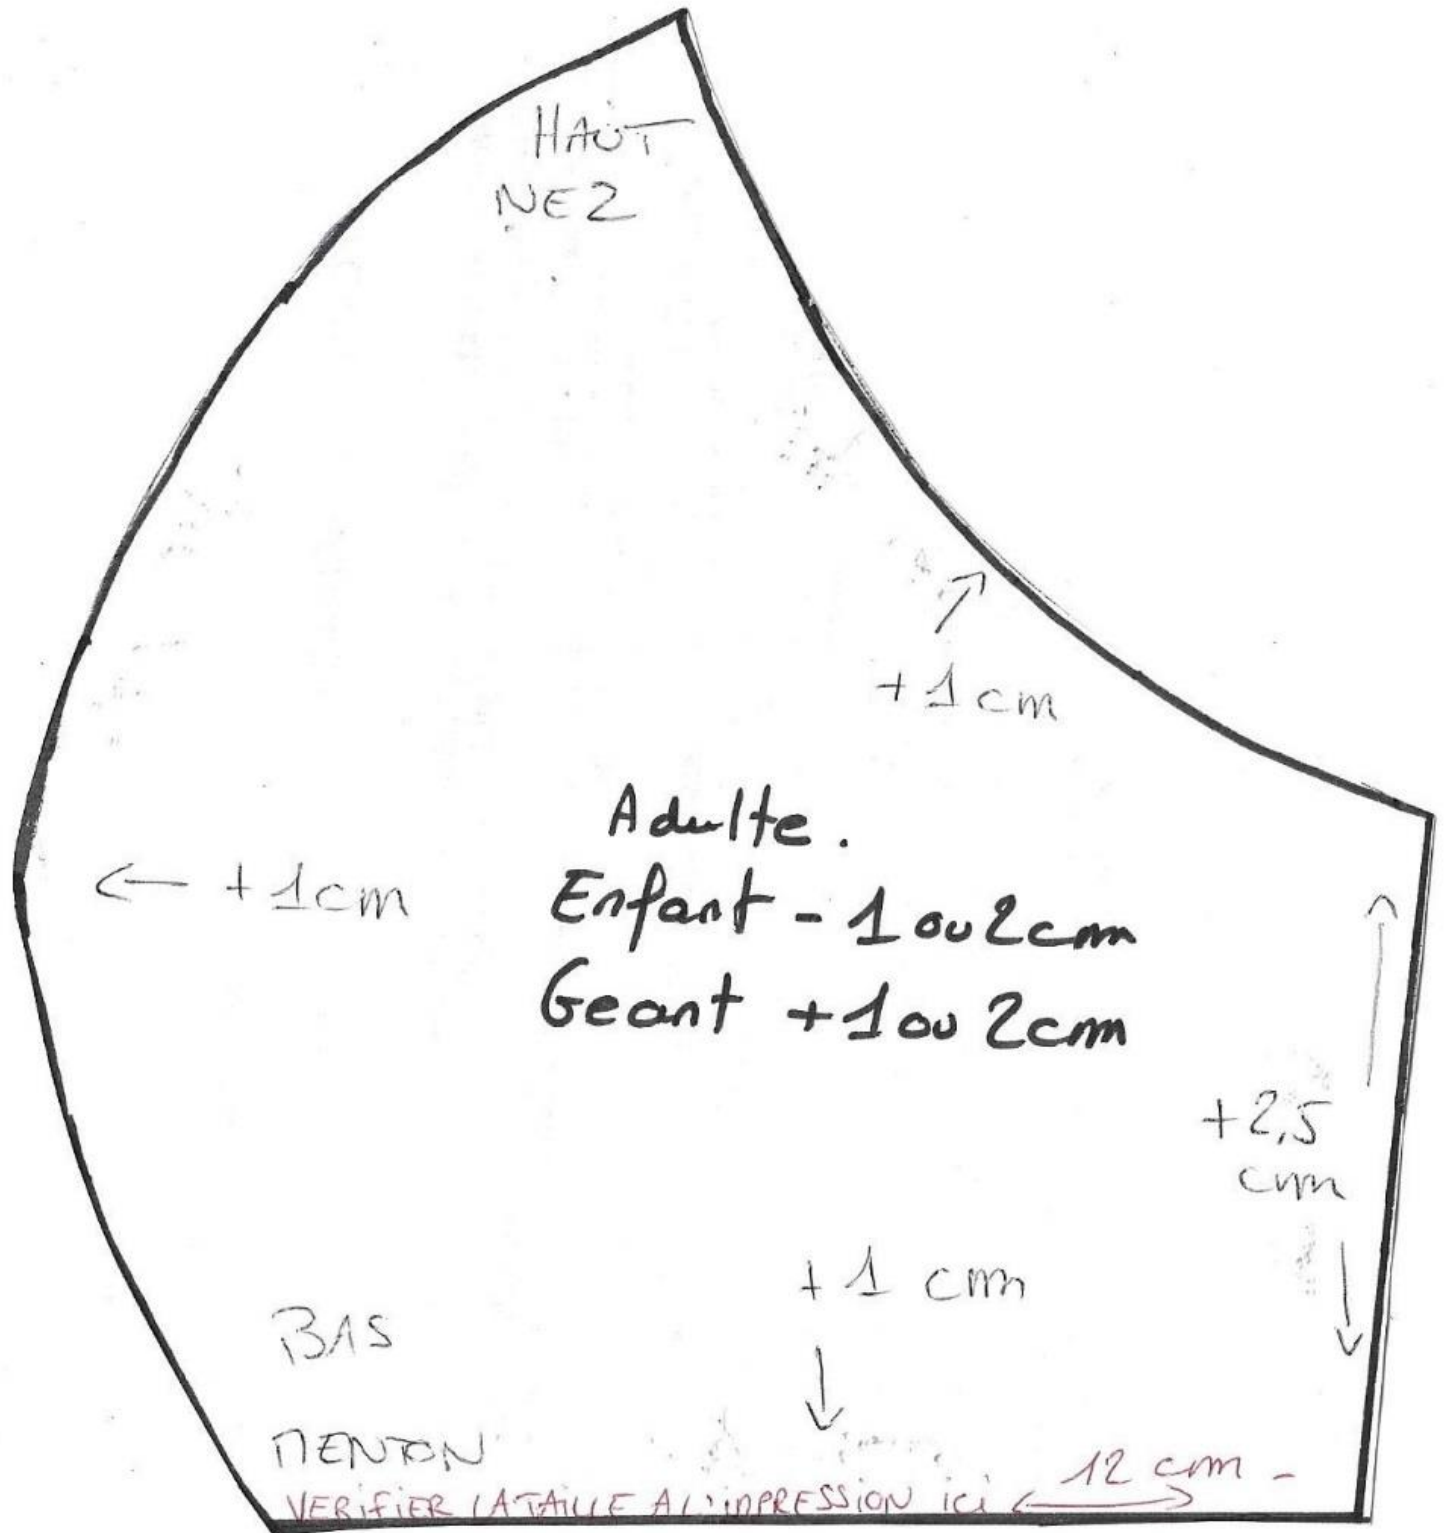 HAUT
NEZ
+1cm
Adulte.
← +1cm
Enfant - 1ou2cm
Geant +1ou 2cm
+2,5
cm
+1 cm
BAS
MENTON
12 cm -
VERIFIER LA TAILLE A L'IMPRESSION ICI